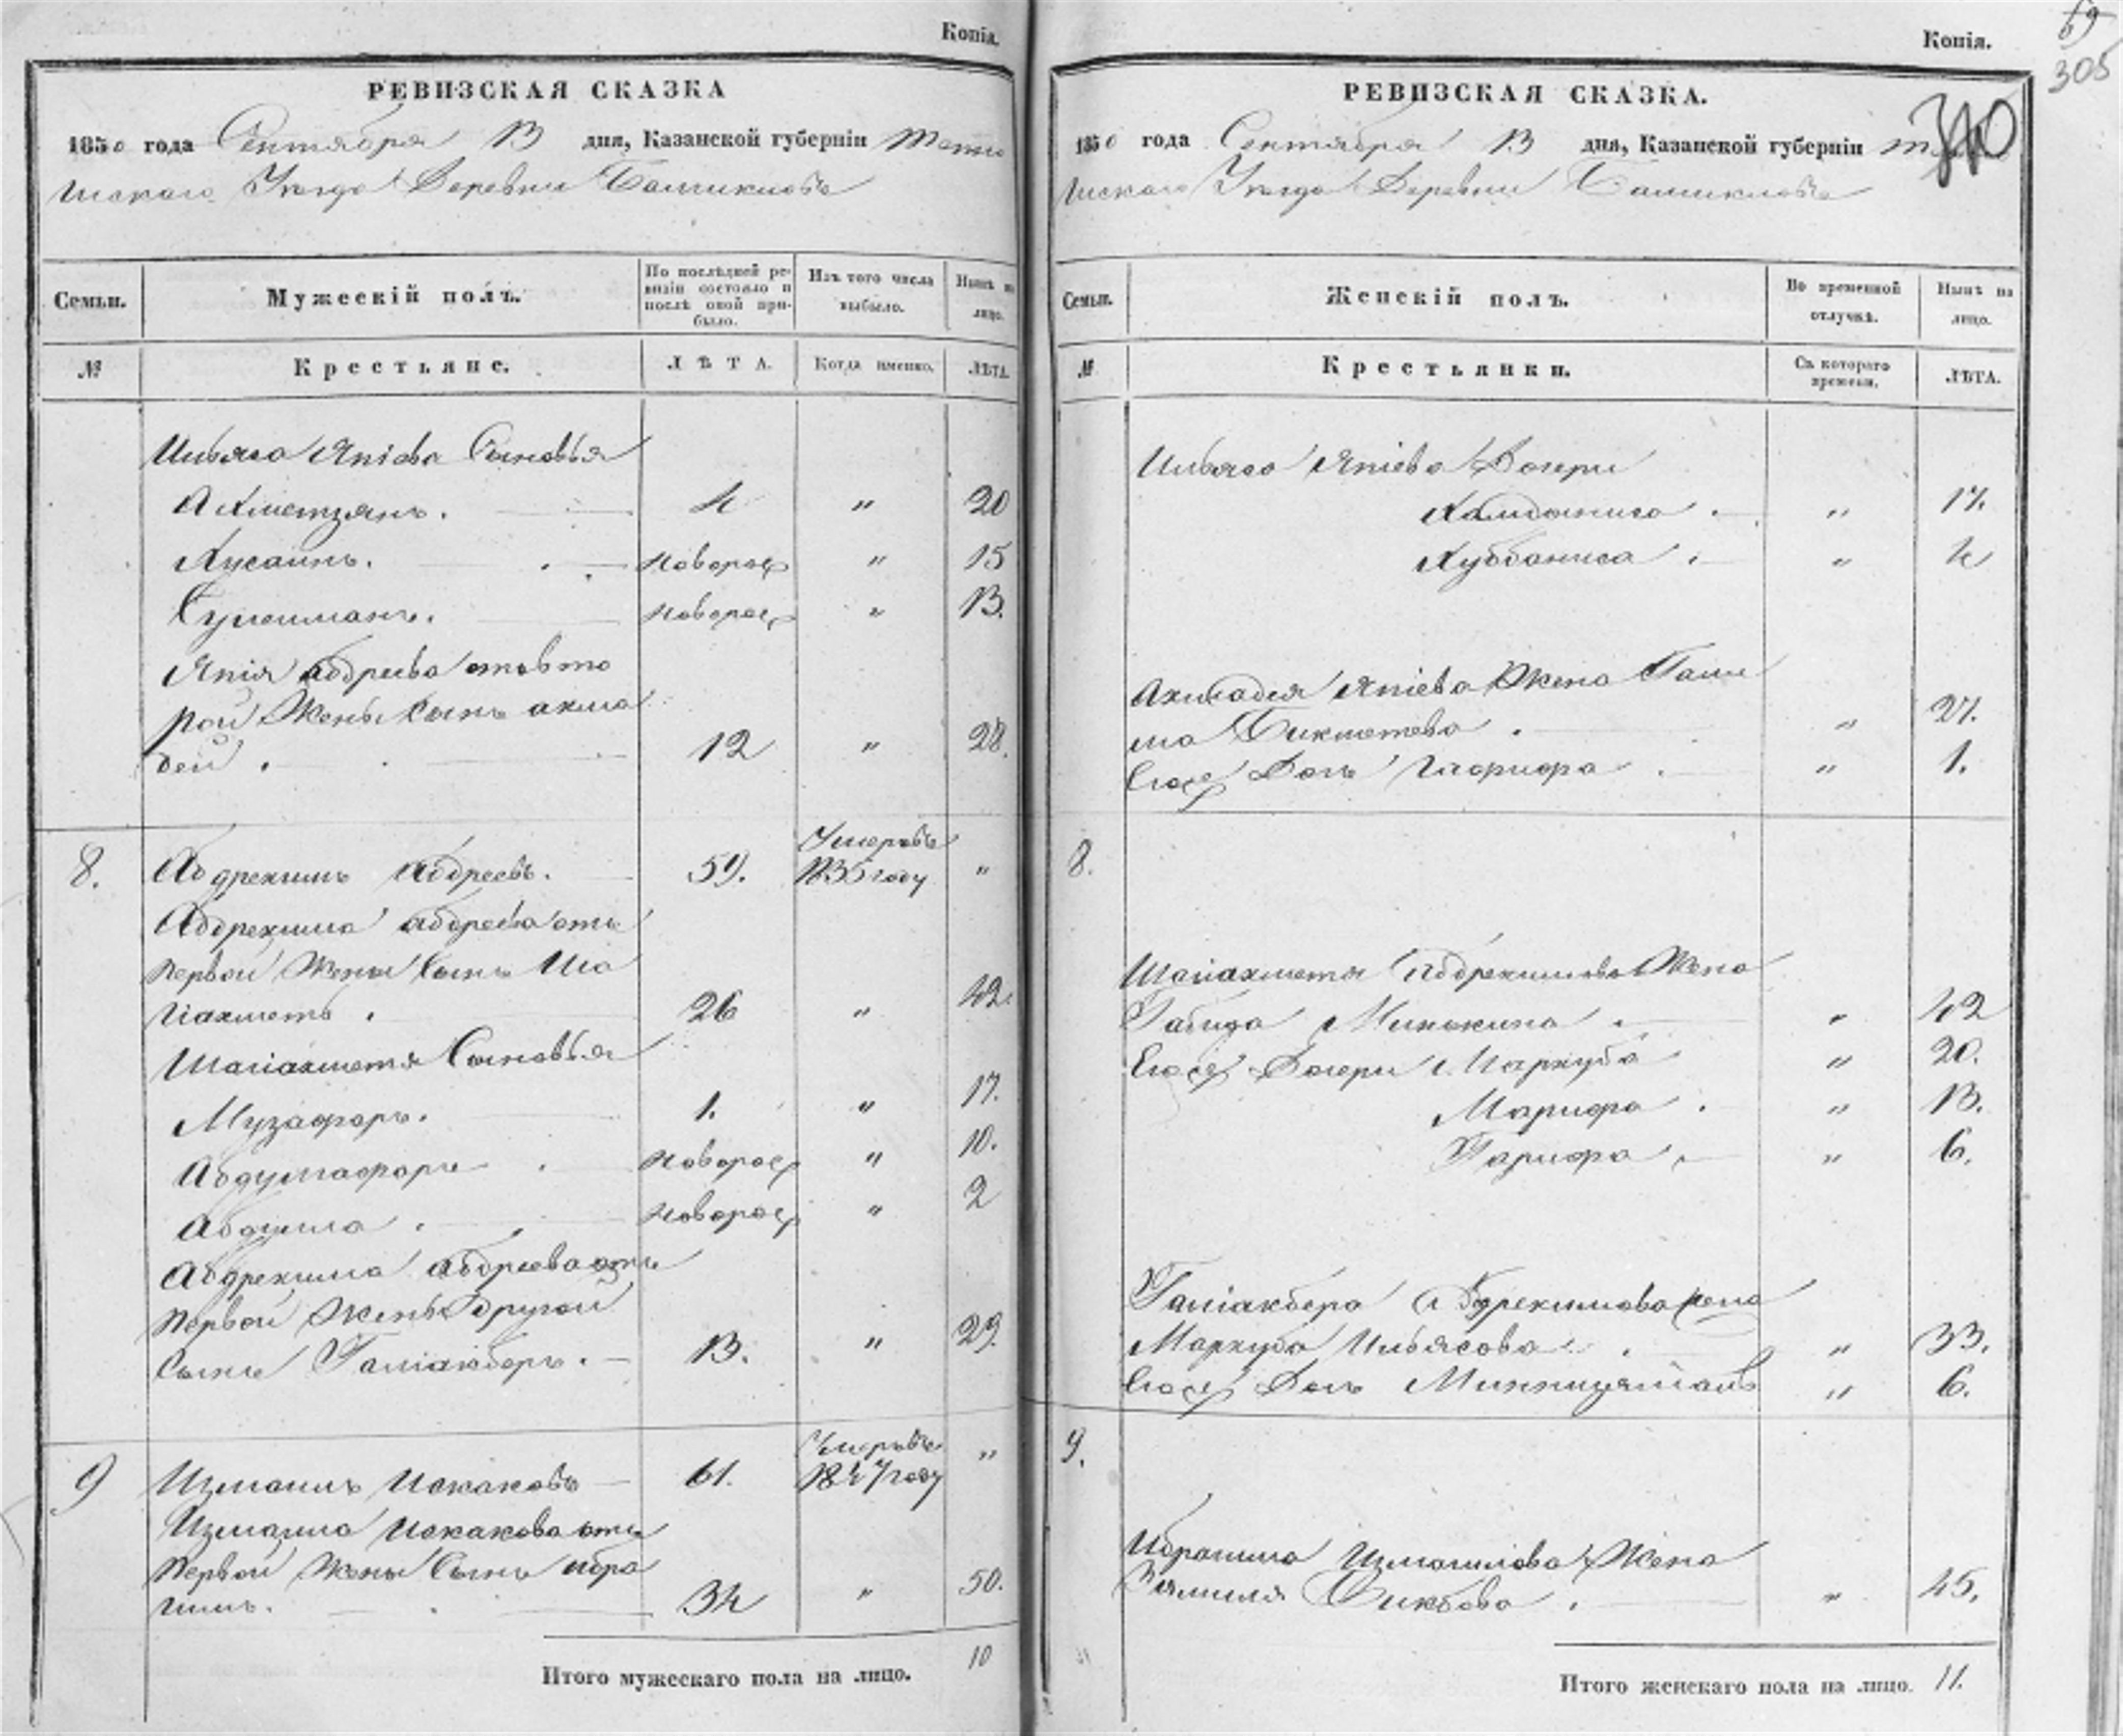 Копія.
РЕВИЗСКАЯ СКАЗКА
1850 года Сентября 13 дня, Казанской губерніи Тетю
шскаго Уезда Деревни
Семьи.
Мужескій полъ.
По последней ре-
визіи состояло и
после оной при-
было.
Изъ того числа
выбыло.
Ныне на
лицо.
№
Крестьяне.
ЛѢТА.
Когда именно.
ЛѢТА.
Ильяса Япіева Сыновья
Ахметзянъ. 4 " 20
Хусаинъ. новорож " 15
Сулейманъ. новорож " 13.
Япія абдреева отъ вто
рой Жены Сынъ ахма
дей. 12 " 28.
8. Абдрехимъ абдреевъ. 59. Умеръ въ 1835 году "
Абдрехима абдреева отъ
первой Жены Сынъ Ша
гіахметъ. 26 " 42.
Шагіахметя Сыновья
Музафаръ. 1. " 17.
Абдулгафаръ новорож " 10.
новорож " 2
Абдрехима абдреева отъ
первой Жены другой
Сынъ Галіакберъ. 13. " 29.
9 Измаилъ Искаковъ 61. Умеръ въ 1847 году "
Измаила Искакова отъ
первой Жены Сынъ ибра
гимъ. 34 " 50.
Итого мужескаго пола на лицо. 10
69
305
310
Копія.
РЕВИЗСКАЯ СКАЗКА.
1850 года Сентября 13 дня, Казанской губерніи
шскаго Уезда Деревни
Семьи.
Женскій полъ.
Во временной
отлучкѣ.
Ныне на
лицо.
№
Крестьянки.
Съ котораго
времени.
ЛѢТА.
Ильяса Япіева Дочери
" 17.
Хуббаниса. " 4
Ахмадея Япіева Жена
Бикметева. " 27.
Его Дочь 1.
8.
Шагіахметя Абдрехимова Жена
Габида. " 42
Его Дочери Маркуба " 20.
Марифа. " 13.
Гарифа " 6.
Галіакбера Абдрехимова жена
Маркуба Ильясова. " 33.
Его Дочь " 6.
9.
Ибрагима Измаилова Жена
" 45.
Итого женскаго пола на лицо. 11.